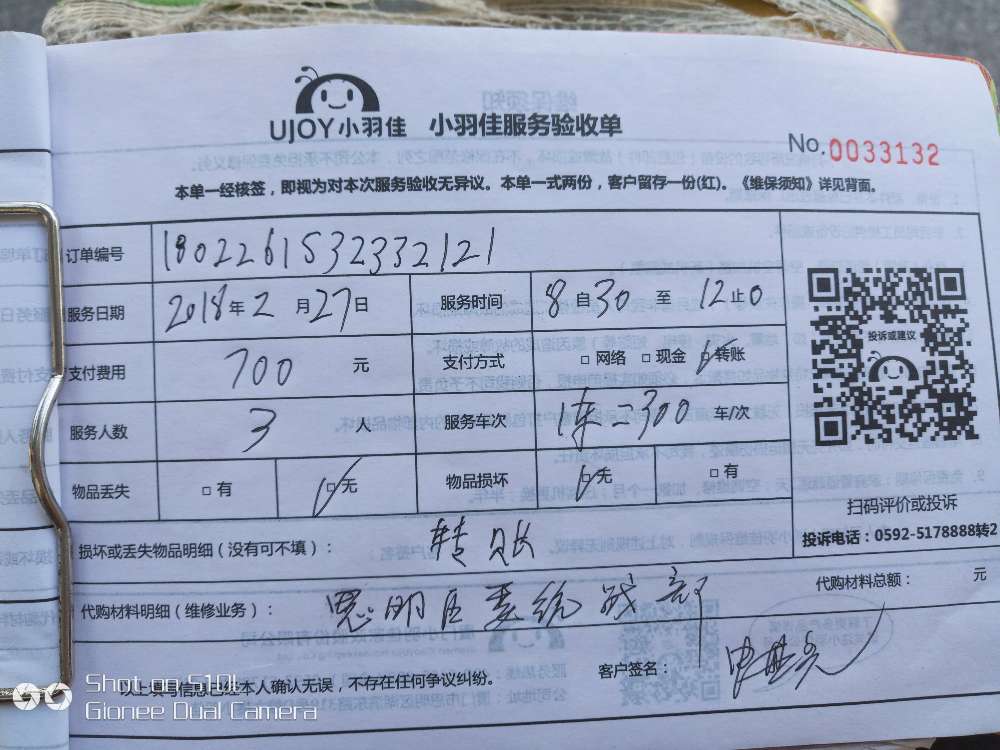 UJOY小羽佳 小羽佳服务验收单
No. 0033132
本单一经核签，即视为对本次服务验收无异议。本单一式两份，客户留存一份(红)。《维保须知》详见背面。
订单编号 180226153233212​1
服务日期 2018年2月27日 服务时间 8自30至12止0
支付费用 700 元 支付方式 □网络 □现金 □转账
投诉或建议
服务人数 3 人 服务车次 1来=300 车/次
物品丢失 □有 □无 物品损坏 □无 □有
扫码评价或投诉
损坏或丢失物品明细（没有可不填）： 转账
投诉电话：0592-5178888转2
代购材料明细（维修业务）： 思明区委统战部 代购材料总额： 元
以上填写信息已经本人确认无误，不存在任何争议纠纷。 客户签名：
Shot on S10L
Gionee Dual Camera